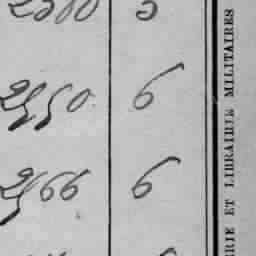 2550 6
2566 6
RIE ET LIBRAIRIE MILITAIRES